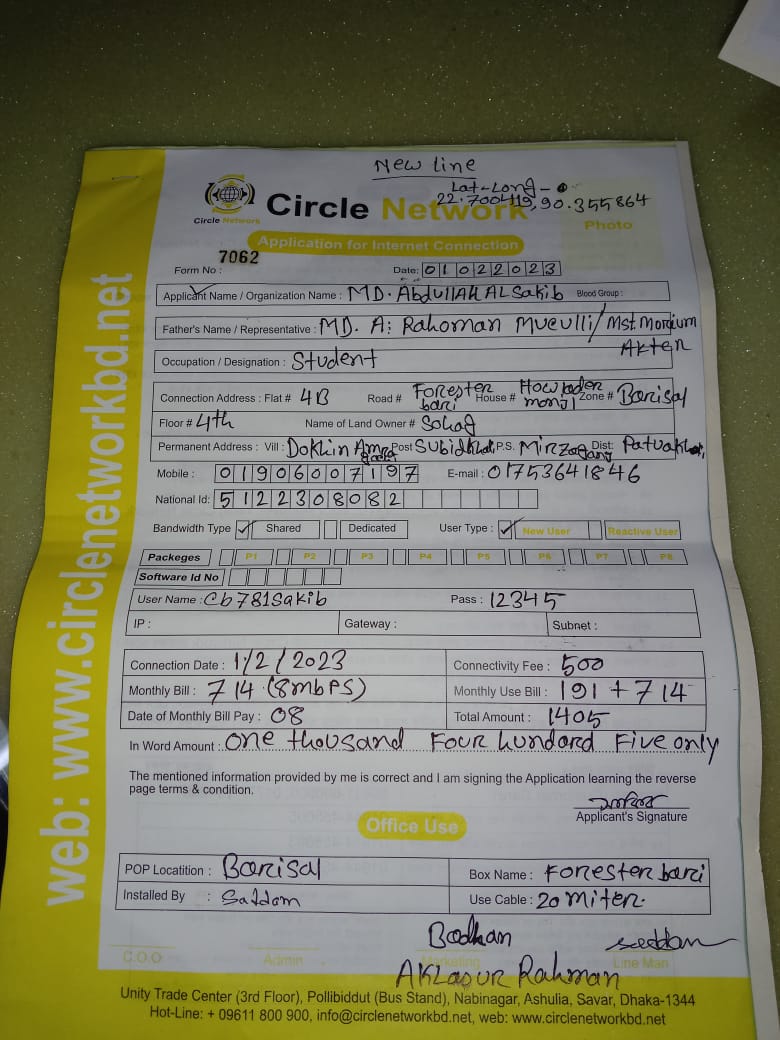 New line
Lat-Long-
22.7004119,90.355864
Circle Network
Circle Network
Photo
Application for Internet Connection
7062
Form No :
Date: 01022023
Applicant Name / Organization Name : MD. Abdullah AL Sakib Blood Group :
Father's Name / Representative : MD. A: Rahoman Mueulli/Mst. Moraium
Akter
Occupation / Designation : Student
Connection Address : Flat # 4B Road # Forester bari House # Howlader monjil Zone # Barisal
Floor # 4th Name of Land Owner # Sohag
Permanent Address : Vill : Dokhin Amragachia Post Subidkhali P.S. Mirzagang Dist: Patuakhali
Mobile : 01906007197 E-mail : 01753641846
National Id: 5122308082
Bandwidth Type ✓ Shared Dedicated User Type : ✓ New User Reactive User
Packeges P1 P2 P3 P4 P5 P6 P7 P8
Software Id No
User Name : Cb781Sakib Pass : 12345
IP : Gateway : Subnet :
Connection Date : 1/2/2023 Connectivity Fee : 500
Monthly Bill : 714 (8mbps) Monthly Use Bill : 191 + 714
Date of Monthly Bill Pay : 08 Total Amount : 1405
In Word Amount : One thousand Four hundard Five only
The mentioned information provided by me is correct and I am signing the Application learning the reverse
page terms & condition.
সাকিব
Applicant's Signature
Office Use
POP Locatition : Barisal Box Name : Forester bari
Installed By : Saddam Use Cable : 20 miter.
Bodhan Seddam
C.O.O Admin Marketing Line Man
AKLASUR Rahman
Unity Trade Center (3rd Floor), Pollibiddut (Bus Stand), Nabinagar, Ashulia, Savar, Dhaka-1344
Hot-Line: + 09611 800 900, info@circlenetworkbd.net, web: www.circlenetworkbd.net
web: www.circlenetworkbd.net